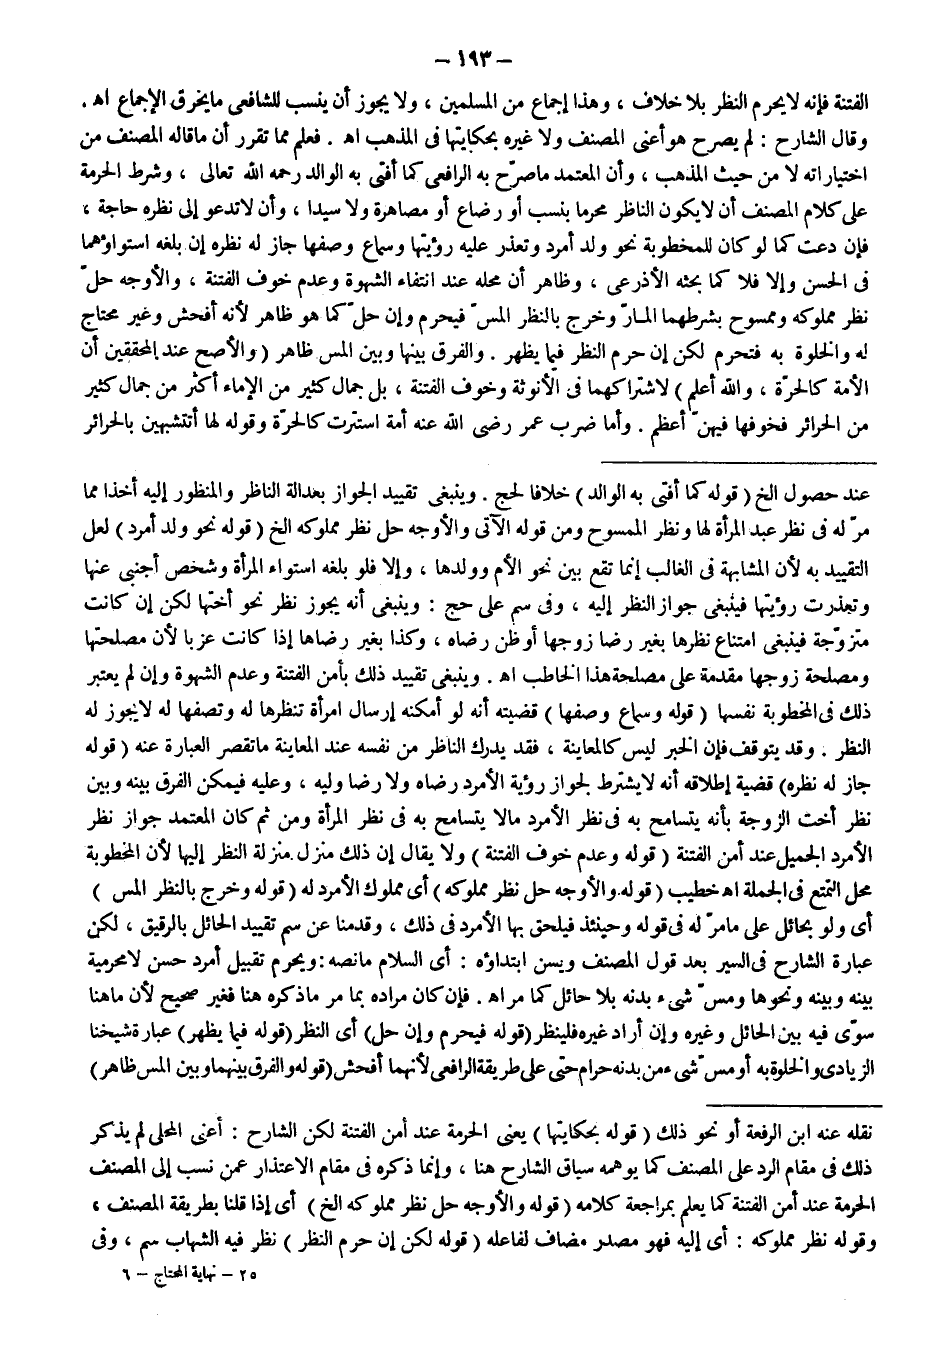 – ١٩٣ –
الفتنة فإنه لايحرم النظر بلا خلاف ، وهذا إجماع من المسلمين ، ولا يجوز أن ينسب للشافعى مايخرق الإجماع اه .
وقال الشارح : لم يصرح هو أعنى المصنف ولا غيره بحكايتها فى المذهب اه . فعلم مما تقرر أن ماقاله المصنف من
اختياراته لا من حيث المذهب ، وأن المعتمد ماصرّح به الرافعى كما أفتى به الوالد رحمه الله تعالى ، وشرط الحرمة
على كلام المصنف أن لايكون الناظر محرما بنسب أو رضاع أو مصاهرة ولا سيدا ، وأن لاتدعو إلى نظره حاجة ،
فإن دعت كما لو كان للمخطوبة نحو ولد أمرد وتعذر عليه رؤيتها وسماع وصفها جاز له نظره إن بلغه استواؤهما
فى الحسن وإلا فلا كما بحثه الأذرعى ، وظاهر أن محله عند انتفاء الشهوة وعدم خوف الفتنة ، والأوجه حلّ
نظر مملوكه وممسوح بشرطهما المارّ وخرج بالنظر المسّ فيحرم وإن حل كما هو ظاهر لأنه أفحش وغير محتاج
له والخلوة به فتحرم لكن إن حرم النظر فيما يظهر . والفرق بينها وبين المس ظاهر ( والأصح عند المحققين أن
الأمة كالحرّة ، والله أعلم ) لاشتراكهما فى الأنوثة وخوف الفتنة ، بل جمال كثير من الإماء أكثر من جمال كثير
من الحرائر فخوفها فيهنّ أعظم . وأما ضرب عمر رضى الله عنه أمة استترت كالحرّة وقوله لها أتتشبهين بالحرائر
عند حصول الخ ( قوله كما أفتى به الوالد ) خلافا لحج . وينبغى تقييد الجواز بعدالة الناظر والمنظور إليه أخذا مما
مرّ له فى نظر عبد المرأة لها ونظر الممسوح ومن قوله الآتى والأوجه حل نظر مملوكه الخ ( قوله نحو ولد أمرد ) لعل
التقييد به لأن المشابهة فى الغالب إنما تقع بين نحو الأم وولدها ، وإلا فلو بلغه استواء المرأة وشخص أجنبى عنها
وتعذرت رؤيتها فينبغى جواز النظر إليه ، وفى سم على حج : وينبغى أنه يجوز نظر نحو أختها لكن إن كانت
متزوّجة فينبغى امتناع نظرها بغير رضا زوجها أو ظن رضاه ، وكذا بغير رضاها إذا كانت عزبا لأن مصلحتها
ومصلحة زوجها مقدمة على مصلحة هذا الخاطب اه . وينبغى تقييد ذلك بأمن الفتنة وعدم الشهوة وإن لم يعتبر
ذلك فى المخطوبة نفسها ( قوله وسماع وصفها ) قضيته أنه لو أمكنه إرسال امرأة تنظرها له وتصفها له لايجوز له
النظر . وقد يتوقف فإن الخبر ليس كالمعاينة ، فقد يدرك الناظر من نفسه عند المعاينة ماتقصر العبارة عنه ( قوله
جاز له نظره) قضية إطلاقه أنه لايشترط لجواز رؤية الأمرد رضاه ولا رضا وليه ، وعليه فيمكن الفرق بينه وبين
نظر أخت الزوجة بأنه يتسامح به فى نظر الأمرد مالا يتسامح به فى نظر المرأة ومن ثم كان المعتمد جواز نظر
الأمرد الجميل عند أمن الفتنة ( قوله وعدم خوف الفتنة ) ولا يقال إن ذلك منزل منزلة النظر إليها لأن المخطوبة
محل التمتع فى الجملة اه خطيب ( قوله والأوجه حل نظر مملوكه ) أى مملوك الأمرد له ( قوله وخرج بالنظر المس )
أى ولو بحائل على مامرّ له فى قوله وحينئذ فيلحق بها الأمرد فى ذلك ، وقدمنا عن سم تقييد الحائل بالرقيق ، لكن
عبارة الشارح فى السير بعد قول المصنف ويسن ابتداؤه : أى السلام مانصه : ويحرم تقبيل أمرد حسن لا محرمية
بينه وبينه ونحوها ومسّ شىء بدنه بلا حائل كما مر اه . فإن كان مراده بما مر ماذكره هنا فغير صحيح لأن ماهنا
سوّى فيه بين الحائل وغيره وإن أراد غيره فلينظر (قوله فيحرم وإن حل) أى النظر (قوله فيما يظهر) عبارة شيخنا
الزيادى والخلوة به أو مسّ شىء من بدنه حرام حتى على طريقة الرافعى لأنهما أفحش (قوله والفرق بينهما وبين المس ظاهر)
نقله عنه ابن الرفعة أو نحو ذلك ( قوله بحكايتها ) يعنى الحرمة عند أمن الفتنة لكن الشارح : أعنى المحلى لم يذكر
ذلك فى مقام الرد على المصنف كما يوهمه سياق الشارح هنا ، وإنما ذكره فى مقام الاعتذار عمن نسب إلى المصنف
الحرمة عند أمن الفتنة كما يعلم بمراجعة كلامه ( قوله والأوجه حل نظر مملوكه الخ ) أى إذا قلنا بطريقة المصنف ،
وقوله نظر مملوكه : أى إليه فهو مصدر مضاف لفاعله ( قوله لكن إن حرم النظر ) نظر فيه الشهاب سم ، وفى
٢٥ – نهاية المحتاج – ٦